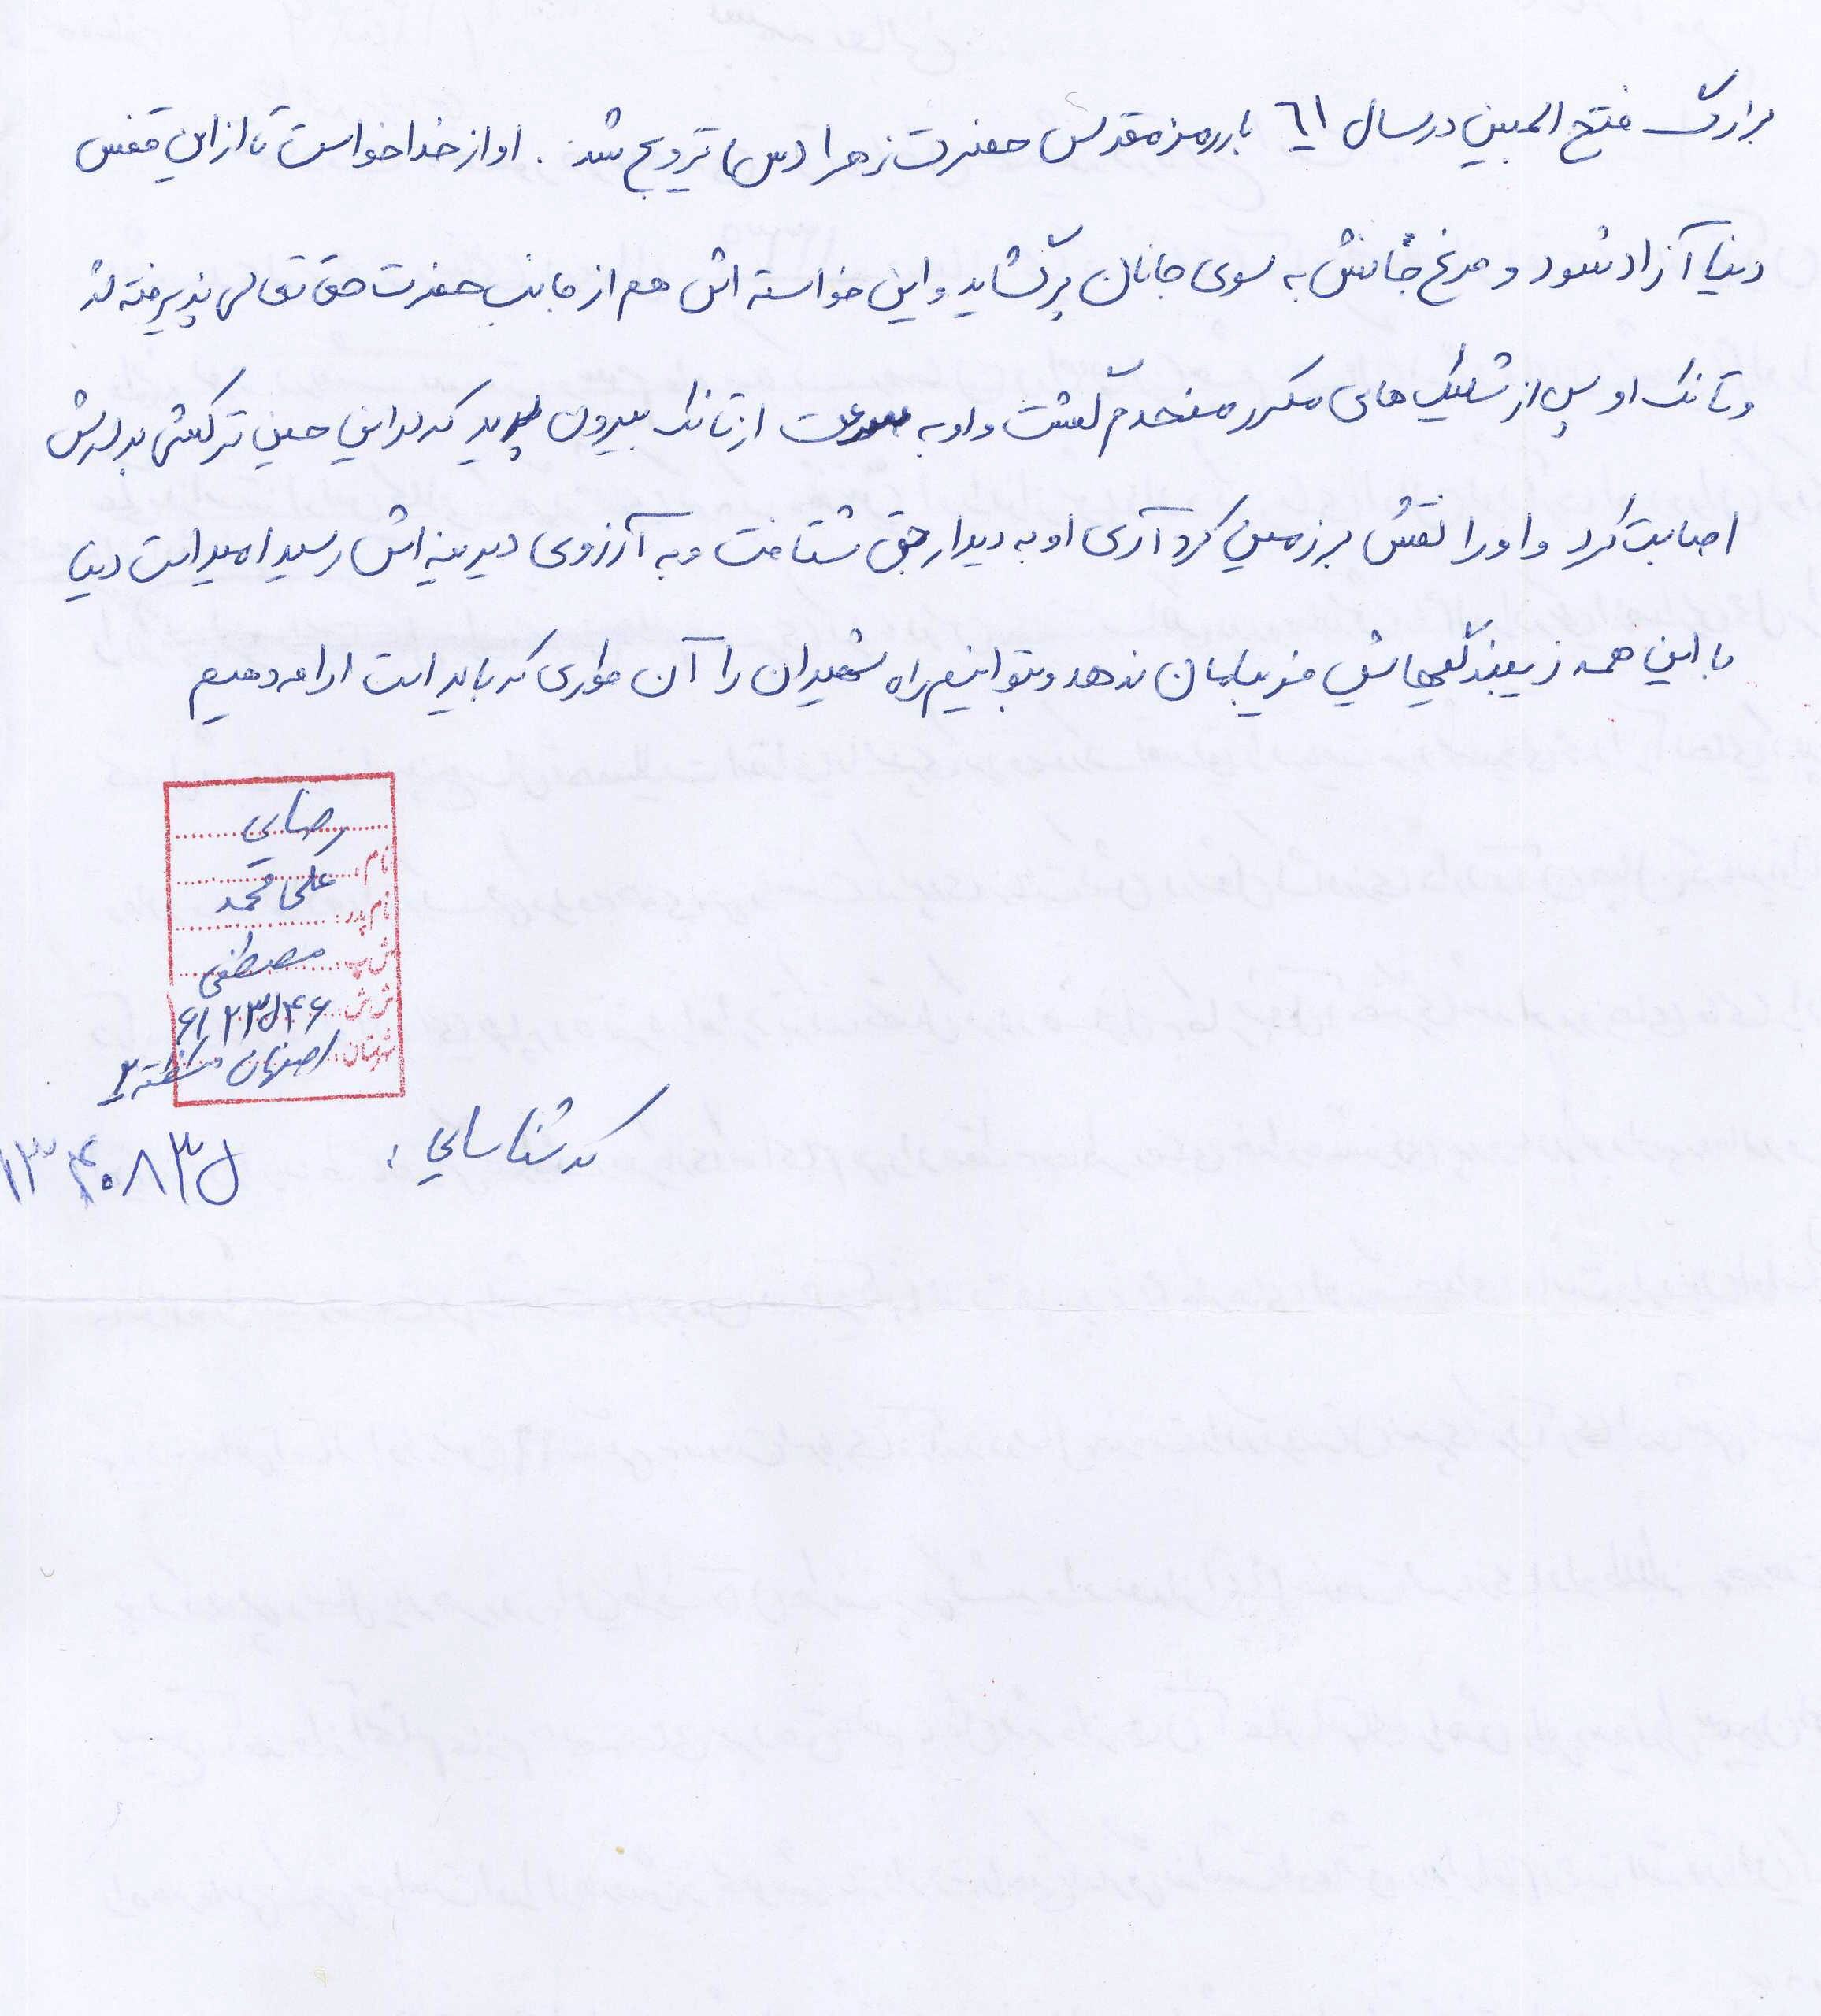 فتح المبین در سال ٦١ با رمز مقدس حضرت زهرا (س) ترویج شد. او از خدا خواست تا از این قفس
دنیا آزاد شود و مرغ جانش به سوی جانان پر گشاید و این خواسته اش هم از جانب حضرت حق تعالی پذیرفته شد
و تانک او پس از شلیک های مکرر منهدم گشت و او به سرعت از تانک بیرون پرید که در این حین ترکش به سرش
اصابت کرد و او را نقش بر زمین کرد آری او به دیدار حق شتافت و به آرزوی دیرینه اش رسید امید است دنیا
با این همه زیبندگیهایش فریبمان ندهد و بتوانیم راه شهیدان را آن طوری که باید است ادامه دهیم
رضایی
نام: علی محمد
نام پدر: مصطفی
ش پ: ۶۱۲۳۵۴۶
ش ش:
شهرستان: اصفهان منطقه ۲
کد شناسایی: ۱۳۴۰۸۳۵